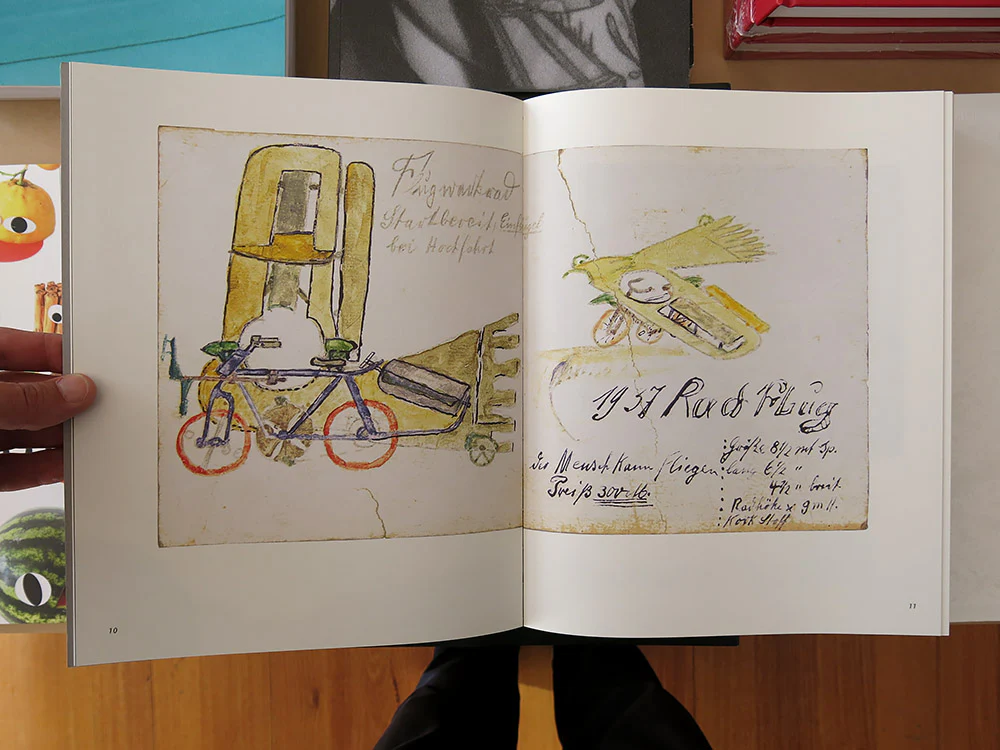 Startbereit, Einflügel
bei Hochfahrt
1937 Rad Flug
der Mensch kann fliegen
Preiß 300 M.
: Größe 8 1/2 mt Sp.
: lang 6 1/2 "
: 4 1/2 " breit
: Radhöhe x 9 m H.
10
11